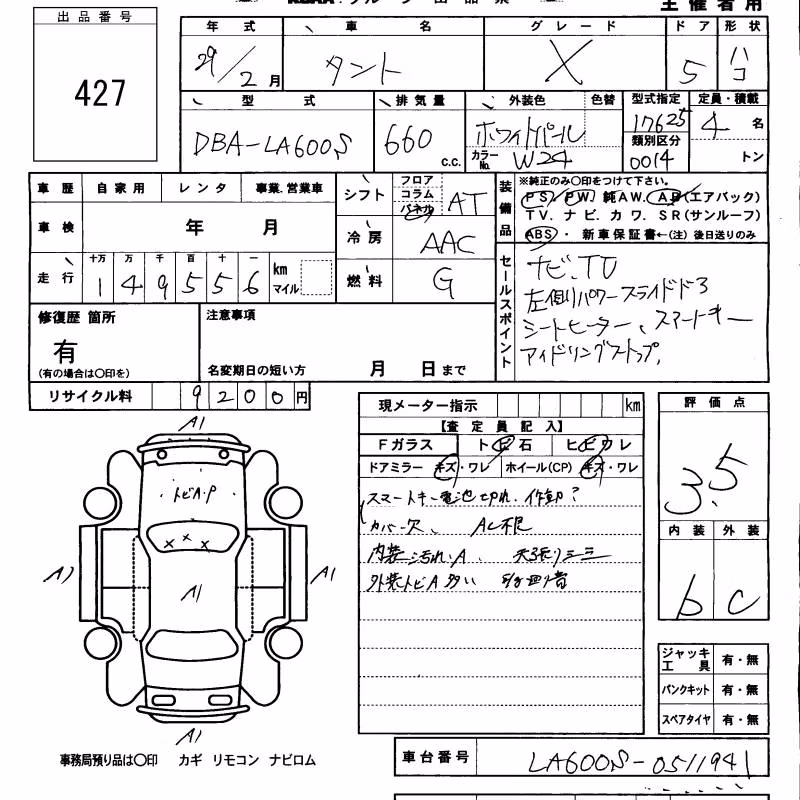 出品番号
427
主催者用
年式 車名 グレード ドア 形状
29/2月 タント X 5 ハコ
型式 排気量 外装色 色替 型式指定 定員・積載
DBA-LA600S 660 c.c. ホワイトパール 17625 4名
カラーNo. W24 類別区分 0014 トン
車歴 自家用 レンタ 事業.営業車
車検 年 月
走行 十万 万 千 百 十 一
149556 km マイル
シフト フロア コラム パネル AT
冷房 AAC
燃料 G
装備品
※純正のみ〇印をつけて下さい。
PS. PW. 純AW. AB(エアバック)
TV. ナビ. カワ. SR(サンルーフ)
ABS ・ 新車保証書←(注) 後日送りのみ
セールスポイント
ナビ.TV
左側パワースライドドア
シートヒーター、スマートキー
アイドリングストップ.
修復歴 箇所
有
(有の場合は〇印を)
注意事項
名変期日の短い方 月 日まで
リサイクル料 9200円
現メーター指示 km
【査定員記入】
Fガラス トビ石 ヒビワレ
ドアミラー キズ・ワレ ホイール(CP) キズ・ワレ
スマートキー電池切れ. 作動?
カバー欠、 AC
内装 汚れ.A、 天張りシミ
外装トビA多い
評価点
3.5
内装 外装
b C
ジャッキ工具 有・無
パンクキット 有・無
スペアタイヤ 有・無
A1
トビA・P
×××
A1 A1 A1
A1
事務局預り品は〇印 カギ リモコン ナビロム
車台番号 LA600S-0511941